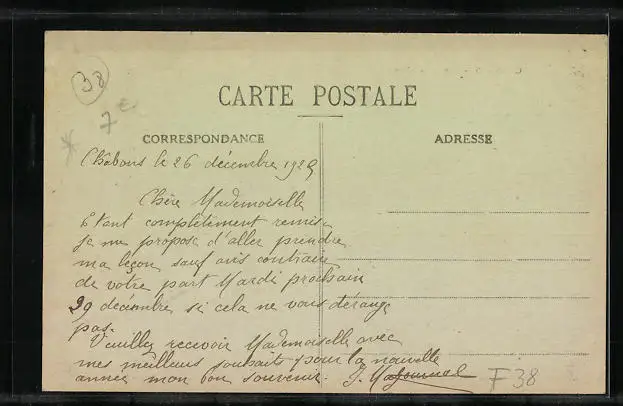 38
7 €
CARTE POSTALE
CORRESPONDANCE
ADRESSE
Châbons le 26 décembre 1925
Chère Mademoiselle
Étant complètement remise
je me propose d'aller prendre
ma leçon sauf avis contraire
de votre part Mardi prochain
29 décembre si cela ne vous dérange
pas.
Veuillez recevoir Mademoiselle avec
mes meilleurs souhaits pour la nouvelle
année mon bon souvenir. J.
F 38